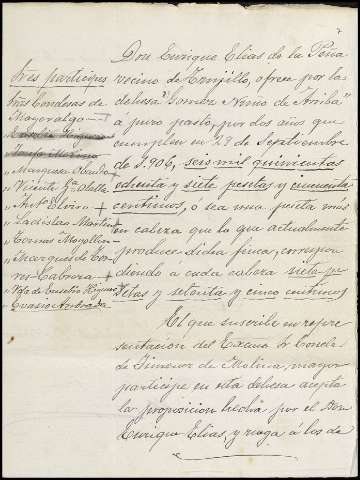 7
Don Enrique Elias de la Peña
vecino de Trujillo, ofrece por la
dehesa "Lomera Nimo de Arriba"
á puro pasto, por dos años que
cumplen en 29 de Septiembre
de 1.906, seis mil quinientas
ochenta y siete pesetas y cincuenta
centimos, ó sea una peseta más
en cabeza que lo que actualmente
produce dicha finca, correspon
diendo a cada cabeza siete pe
setas y setenta y cinco centimos
El que suscribe en repre
sentacion del Excmo Sr Conde
de Jimenez de Molina, mayor
participe en esta dehesa acepta
la proposicion hecha por el Don
Enrique Elias, y ruega á los de
tres participes
Sres Condesas de
Mayoralgo
Marquesa
Vicente Gª
Antº Elviro
Ladislao Martin
Tomas
Marques de Tor
res-Cabrera
Vda de Eusebio Higuero
Evasio Andrada